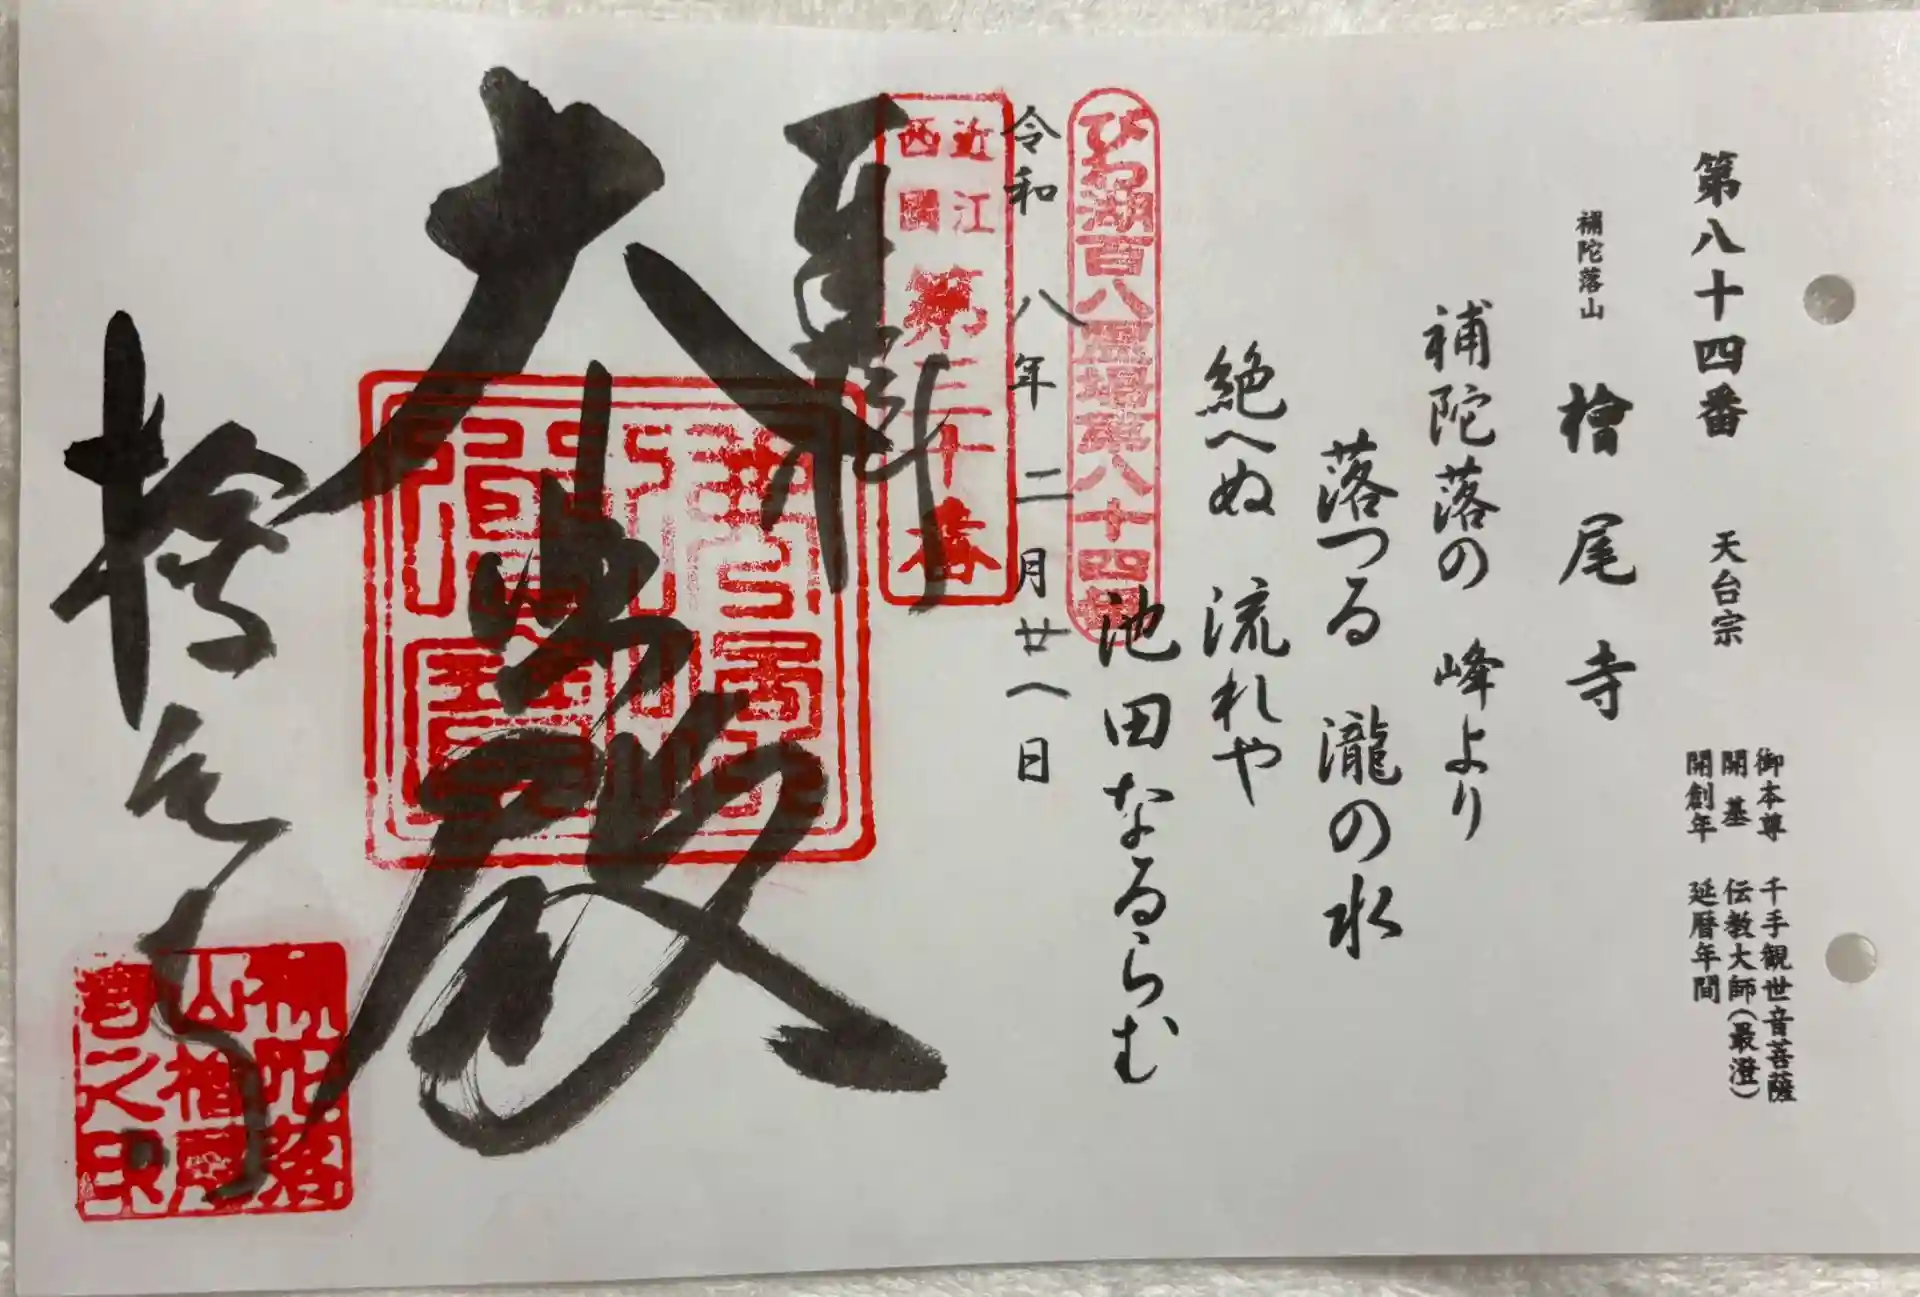 第八十四番 天台宗
御本尊 千手観世音菩薩
開基 伝教大師(最澄)
開創年 延暦年間
補陀落山 檜尾寺
補陀落の 峰より
落つる 瀧の水
絶へぬ 流れや
池田なるらむ
びわ湖百八霊場第八十四番
令和八年二月廿八日
近江
西国
第三十番
奉拝
大悲殿
檜尾寺
補陀落
山檜尾
寺之印